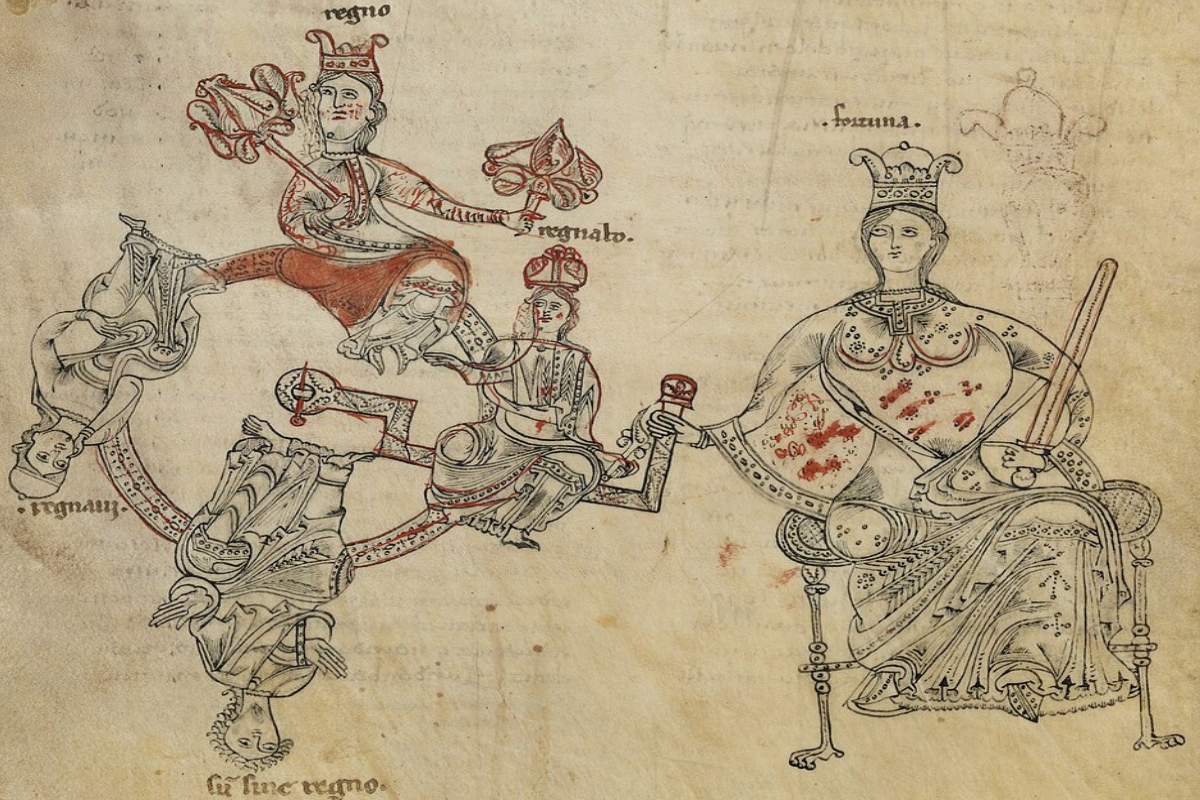 regno
.fortuna.
regnabo.
.regnavi.
sū sine regno.